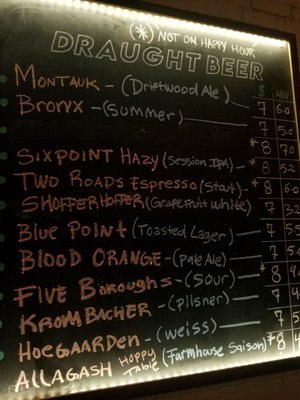 (*) NOT ON HAPPY HOUR
DRAUGHT BEER
$ ABV
MONTAUK - (Driftwood Ale) 7 6.0
BRONX - (Summer) 7 5.0
* 8 7.0
SIXPOINT HAZY (Session IPA) * 8 5.2
TWO ROADS ESPRESSO (Stout) * 8 6.0
SHOFFERHOFFER (GRAPEFRUIT White) 7
BLUE POINT (Toasted Lager) 7
BLOOD ORANGE - (Pale Ale) 7
FIVE BOROUGHS - (SOUR) * 8
KROMBACHER - (pilsner) 7
HOEGAARDEN - (weiss) 7
ALLAGASH HOPPY TABLE (Farmhouse Saison) * 8